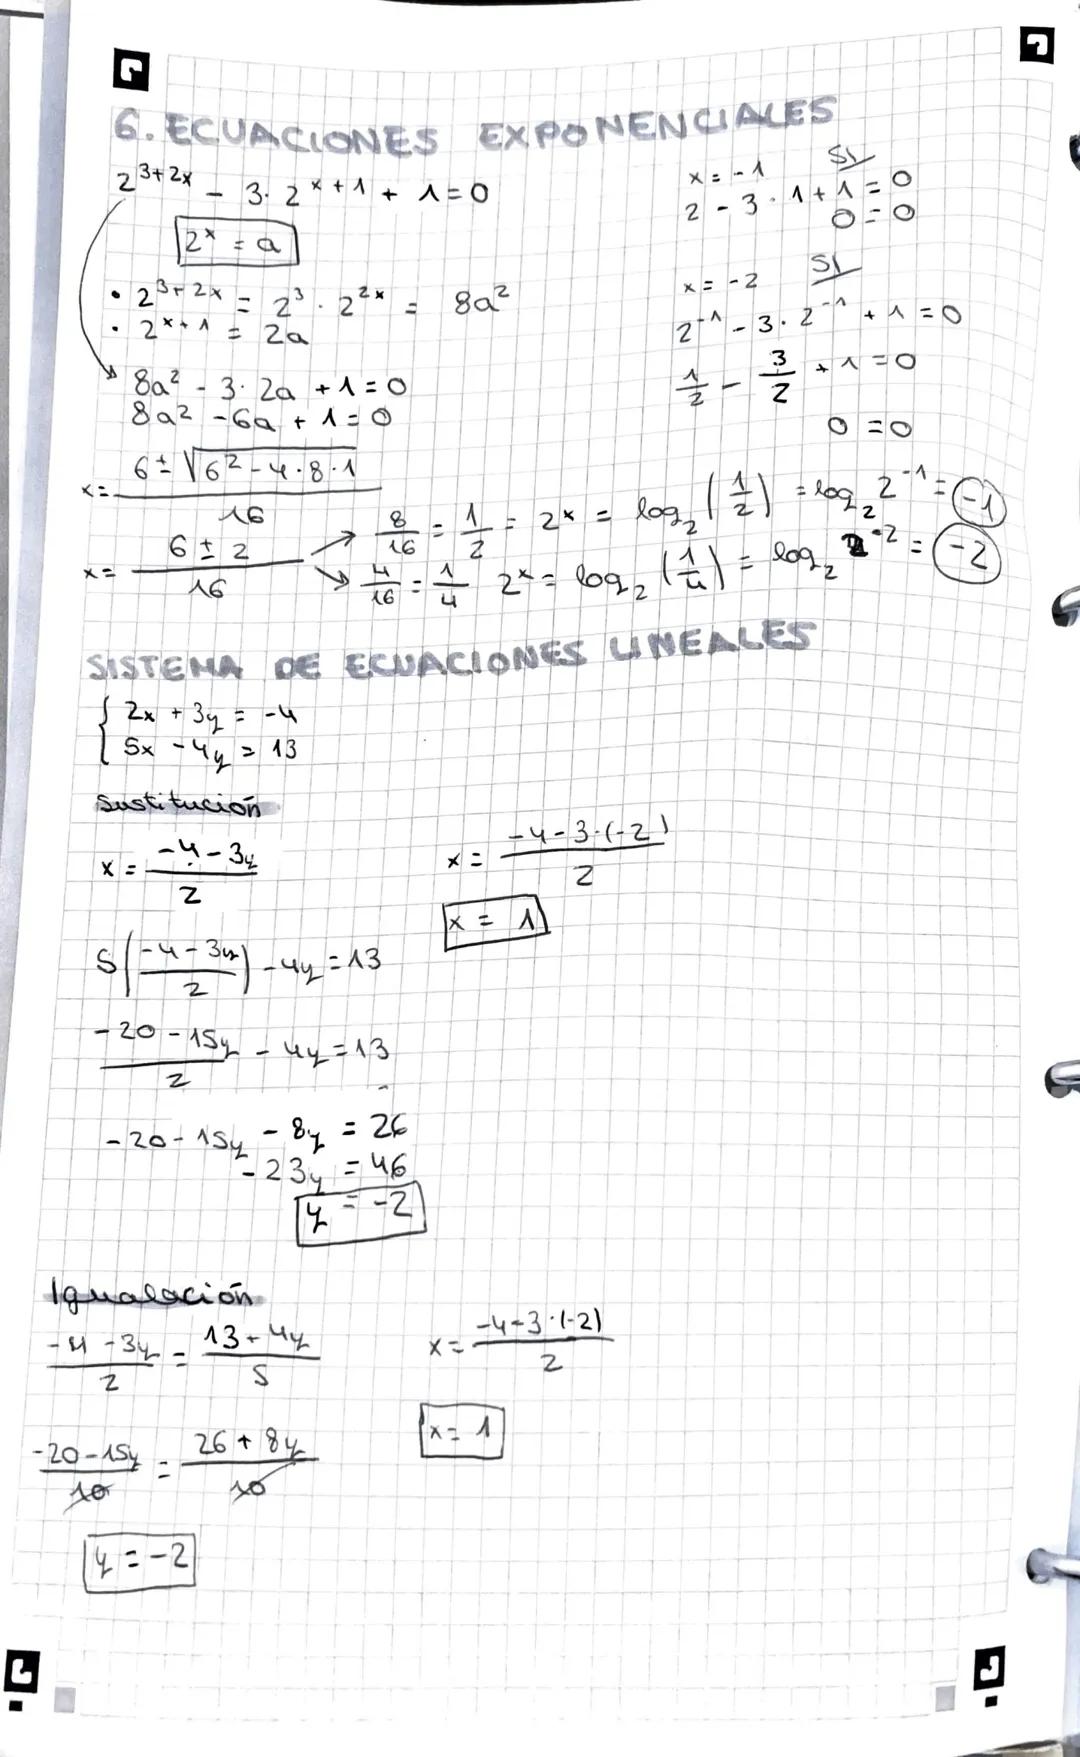 6. ECUACIONES EXPONENCIALES
2^{3+2x} - 3·2^{x+1} + 1 = 0
2^x = a
• 2^{3+2x} = 2^3 · 2^{2x} = 8a^2
• 2^{x+1} = 2a
8a^2 - 3·2a + 1 = 0
8a^2 - 6a + 1 = 0
x = (6 ± √(6^2 - 4·8·1))/16
x = (6 ± 2)/16
→ 8/16 = 1/2 = 2^x = log_2 (1/2) = log_2 2^{-1} = -1
→ 4/16 = 1/4 2^x = log_2 (1/4) = log_2 2^{-2} = -2
x = -1 SI
2 - 3·1 + 1 = 0
0 = 0
x = -2 SI
2^{-1} - 3·2^{-1} + 1 = 0
1/2 - 3/2 + 1 = 0
0 = 0
SISTEMA DE ECUACIONES LINEALES
{ 2x + 3y = -4
5x - 4y = 13
Sustitución
x = (-4 - 3y)/2
5((-4 - 3y)/2) - 4y = 13
(-20 - 15y)/2 - 4y = 13
-20 - 15y - 8y = 26
-23y = 46
y = -2
x = (-4 - 3·(-2))/2
x = 1
Igualación
(-4 - 3y)/2 = (13 + 4y)/5
(-20 - 15y)/10 = (26 + 8y)/10
y = -2
x = (-4 - 3·(-2))/2
x = 1